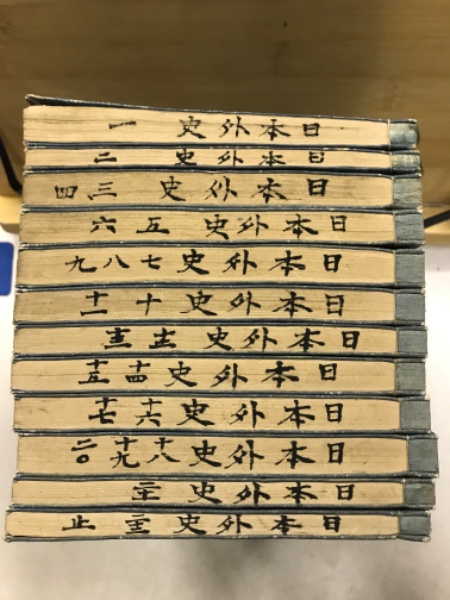 日本外史 一
日本外史 二
日本外史 三 四
日本外史 五 六
日本外史 七 八 九
日本外史 十 十一
日本外史 十二 十三
日本外史 十四 十五
日本外史 十六 十七
日本外史 十八 十九 二〇
日本外史 二十一
日本外史 二十二 止